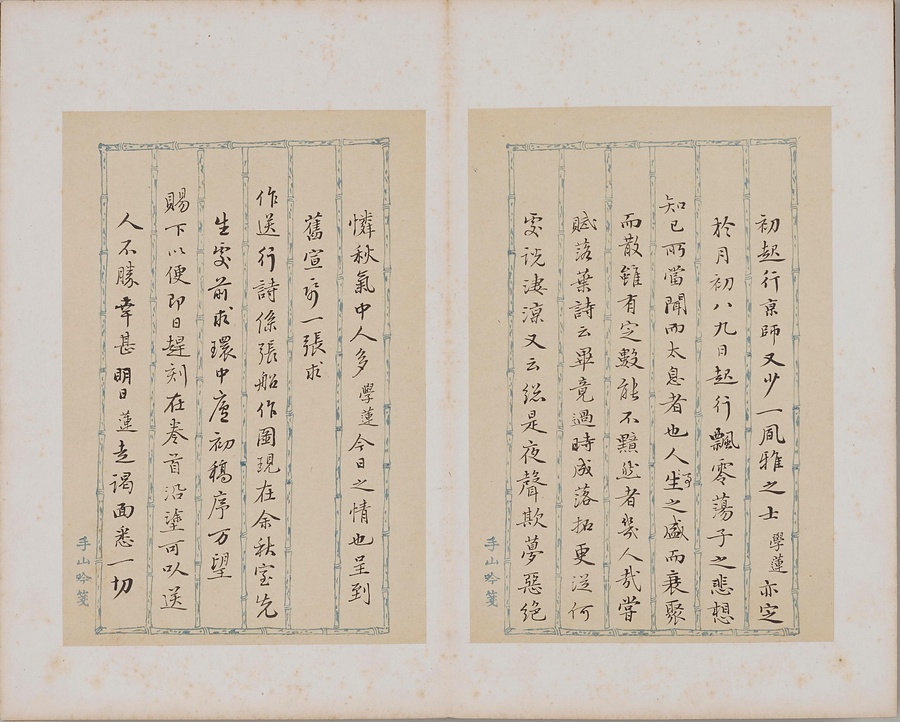 初起行京師又少一風雅之士學蓮亦定
於月初八九日起行飄零蕩子之悲想
知己所當聞而太息者也人生之盛而衰聚
而散雖有定數能不黯然者幾人哉嘗
賦落葉詩云畢竟過時成落拓更從何
處說淒涼又云總是夜聲欺夢惡絕
手山吟箋
憐秋氣中人多學蓮今日之情也呈到
舊宣紙一張求
作送行詩係張船作圖現在余秋室先
生處前求環中廬初稿序萬望
賜下以便即日趕刻在卷首沿塗可以送
人不勝幸甚明日蓮走謁面悉一切
手山吟箋